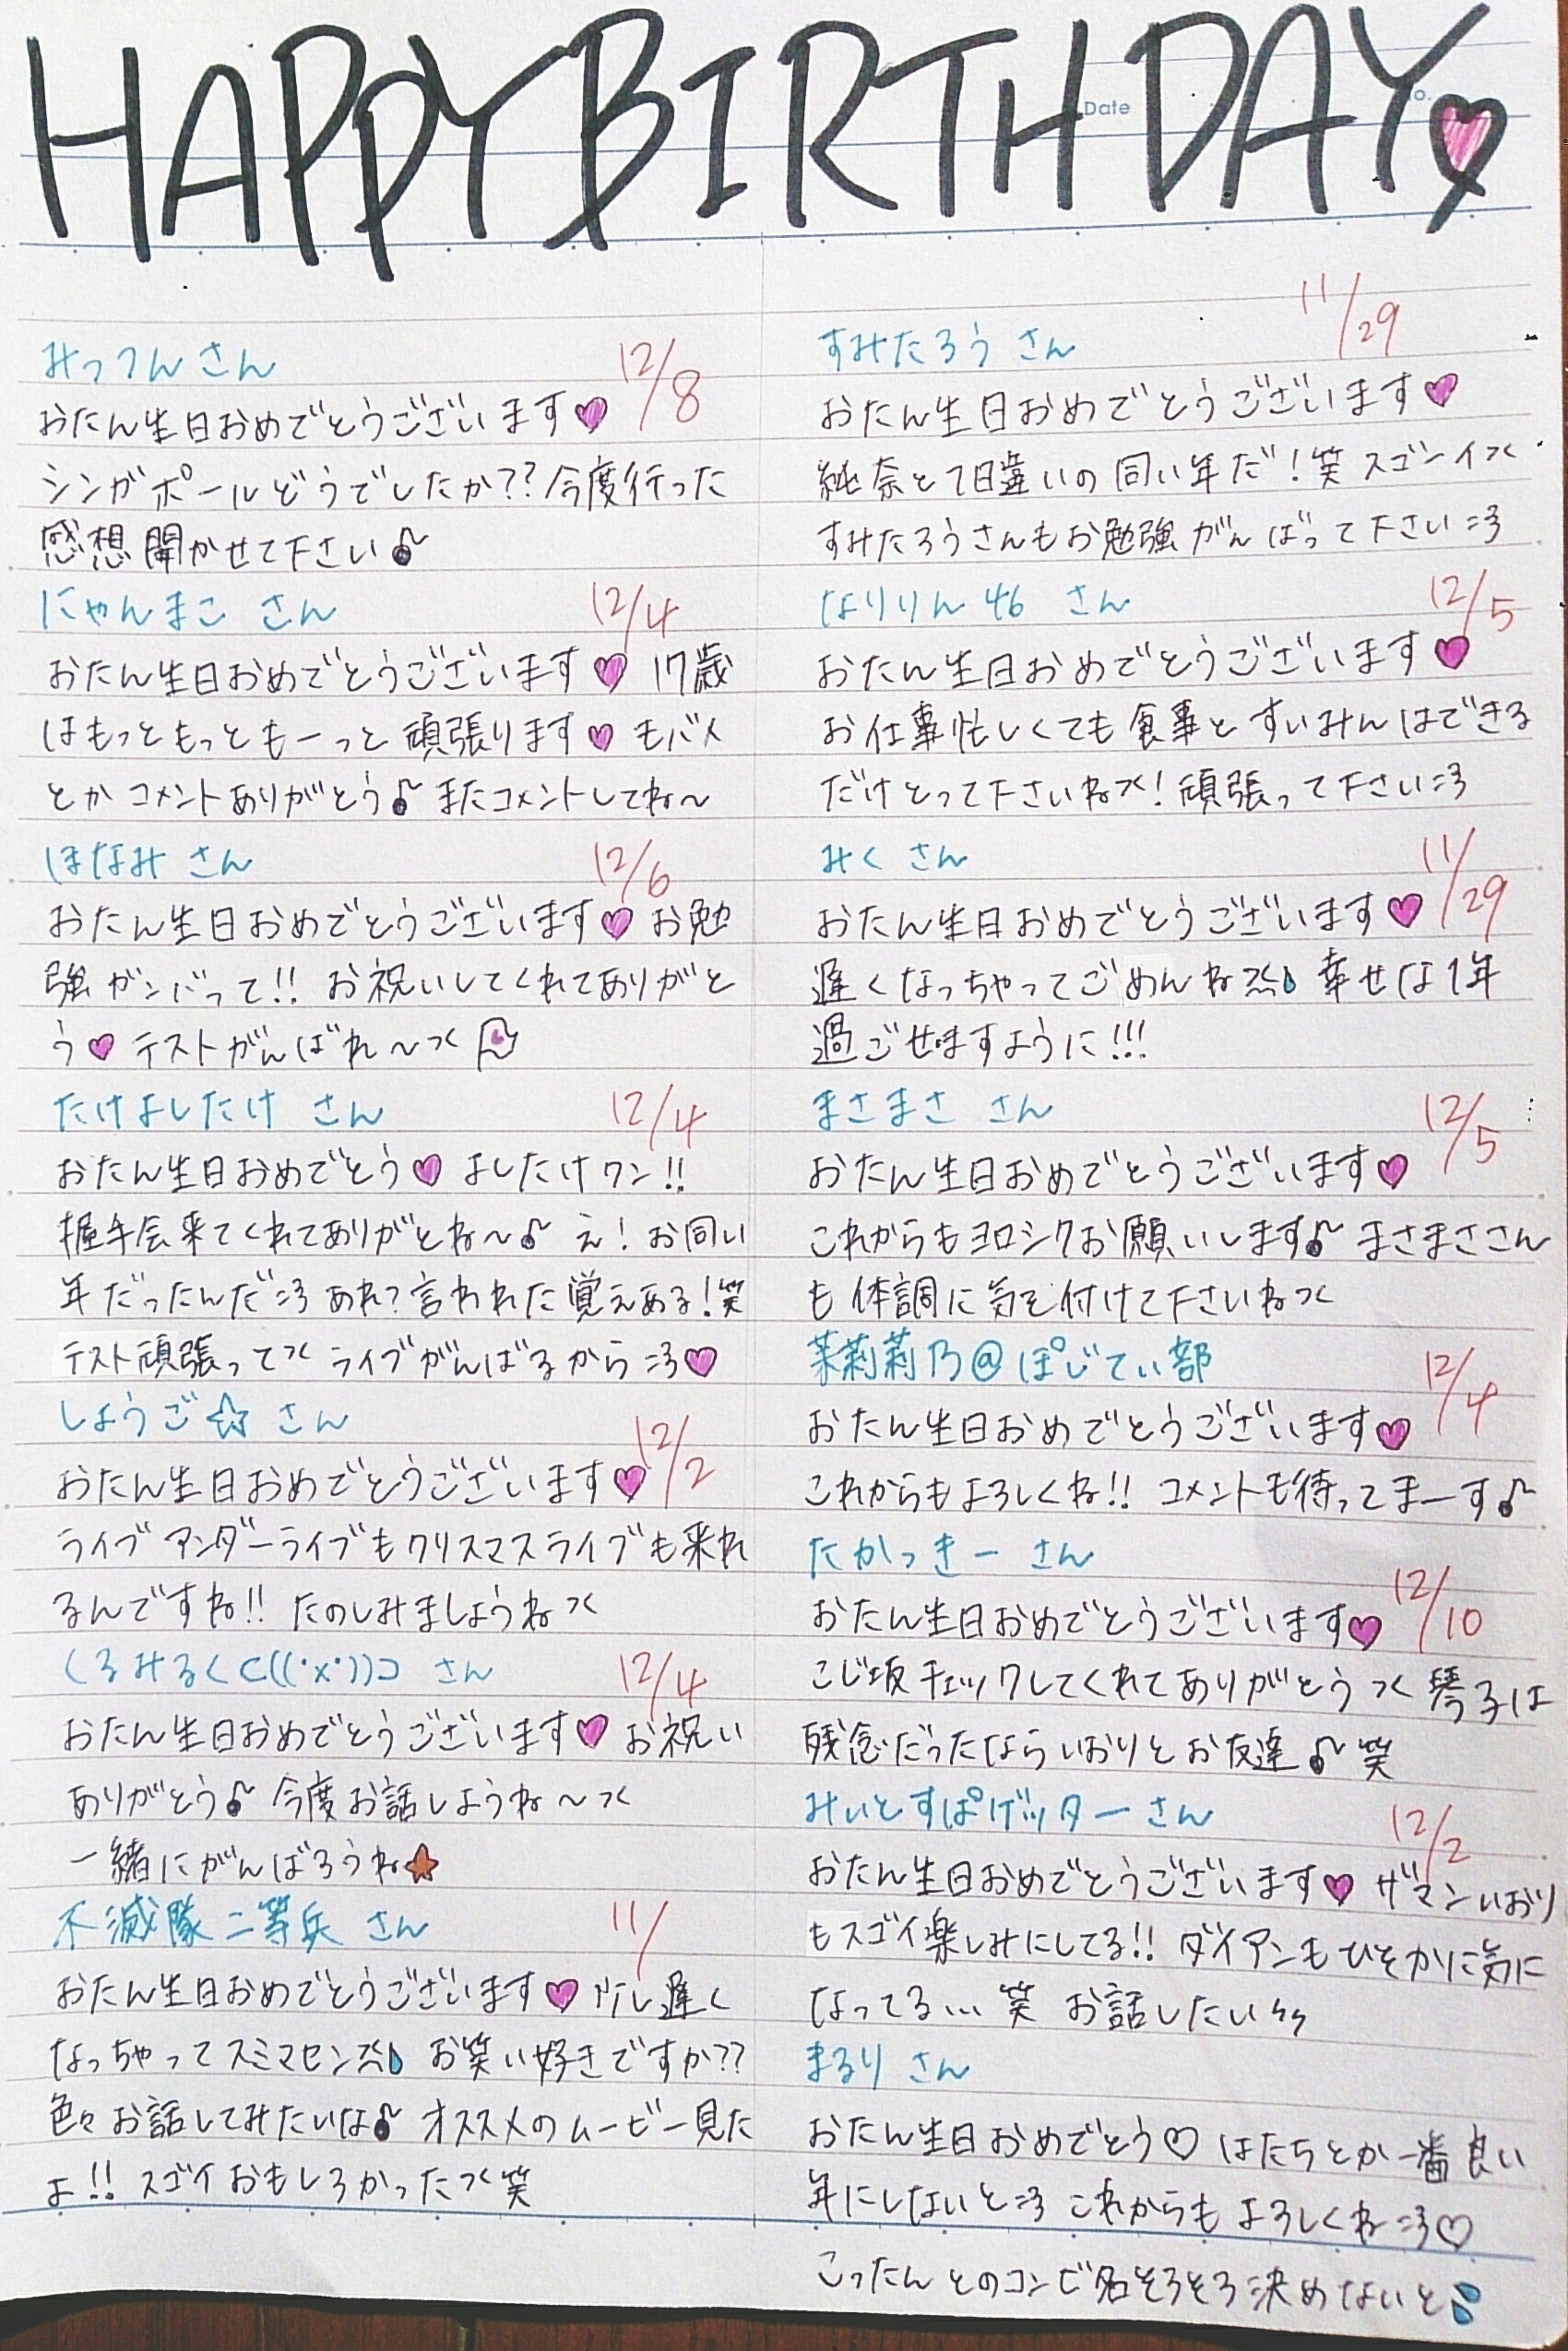 HAPPY BIRTHDAY♥
Date
No.
みってんさん 12/8
おたん生日おめでとうございます♥
シンガポールどうでしたか??今度行った
感想聞かせて下さい♪
にゃんまこ さん 12/4
おたん生日おめでとうございます♥ 17歳
はもっともっともーっと頑張ります♥ モバメ
とかコメントありがとう♪またコメントしてね〜
ほなみ さん 12/6
おたん生日おめでとうございます♥ お勉
強ガンバって!! お祝いしてくれてありがと
う♥テストがんばれ〜
たけよしたけ さん 12/4
おたん生日おめでとう♥ よしたけワン!!
握手会来てくれてありがとね〜♪ え!お同い
年だったんだ あれ?言われた覚えある!笑
テスト頑張って ライブがんばるから♥
しょうご☆ さん 12/2
おたん生日おめでとうございます♥
ライブ アンダーライブもクリスマスライブも来れ
るんですね!! たのしみましょうね
くるみるく⊂((・x・))⊃ さん 12/4
おたん生日おめでとうございます♥ お祝い
ありがとう♪ 今度お話しようね〜
一緒にがんばろうね★
不滅隊二等兵 さん 11/
おたん生日おめでとうございます♥ 遅く
なっちゃってスミマセン お笑い好きですか??
色々お話してみたいな♪ オススメのムービー見た
よ!! スゴイおもしろかった 笑
すみたろう さん 11/29
おたん生日おめでとうございます♥
純奈と1日違いの同い年だ!笑 スゴーイ
すみたろうさんもお勉強がんばって下さい
なりりん46 さん 12/5
おたん生日おめでとうございます♥
お仕事忙しくても食事とすいみんはできる
だけとって下さいね!頑張って下さい
みく さん 11/29
おたん生日おめでとうございます♥
遅くなっちゃってごめんね 幸せな1年
過ごせますように!!!
まさまさ さん 12/5
おたん生日おめでとうございます♥
これからもヨロシクお願いします♪ まさまささん
も体調に気を付けて下さいね
茉莉莉乃@ぽじてぃ部 12/4
おたん生日おめでとうございます♥
これからもよろしくね!! コメントも待ってまーす♪
たかっきー さん 12/10
おたん生日おめでとうございます♥
こじ坂チェックしてくれてありがとう 琴子は
残念だったならいおりとお友達♪ 笑
みいとすぱげッターさん 12/2
おたん生日おめでとうございます♥ ザマンいおり
もスゴイ楽しみにしてる!! ダイアンもひそかに気に
なってる... 笑 お話したい
まるり さん
おたん生日おめでとう♡ はたちとか一番良い
年にしないと これからもよろしくね♡
こったんとのコンビ名そろそろ決めないと